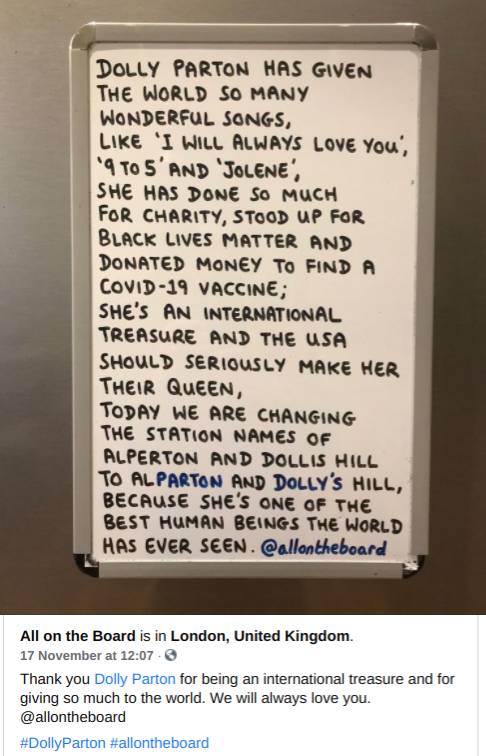 DOLLY PARTON HAS GIVEN
THE WORLD SO MANY
WONDERFUL SONGS,
LIKE 'I WILL ALWAYS LOVE YOU',
'9 TO 5' AND 'JOLENE',
SHE HAS DONE SO MUCH
FOR CHARITY, STOOD UP FOR
BLACK LIVES MATTER AND
DONATED MONEY TO FIND A
COVID-19 VACCINE;
SHE'S AN INTERNATIONAL
TREASURE AND THE USA
SHOULD SERIOUSLY MAKE HER
THEIR QUEEN,
TODAY WE ARE CHANGING
THE STATION NAMES OF
ALPERTON AND DOLLIS HILL
TO ALPARTON AND DOLLY'S HILL,
BECAUSE SHE'S ONE OF THE
BEST HUMAN BEINGS THE WORLD
HAS EVER SEEN. @allontheboard
All on the Board is in London, United Kingdom.
17 November at 12:07 ·
Thank you Dolly Parton for being an international treasure and for
giving so much to the world. We will always love you.
@allontheboard
#DollyParton #allontheboard